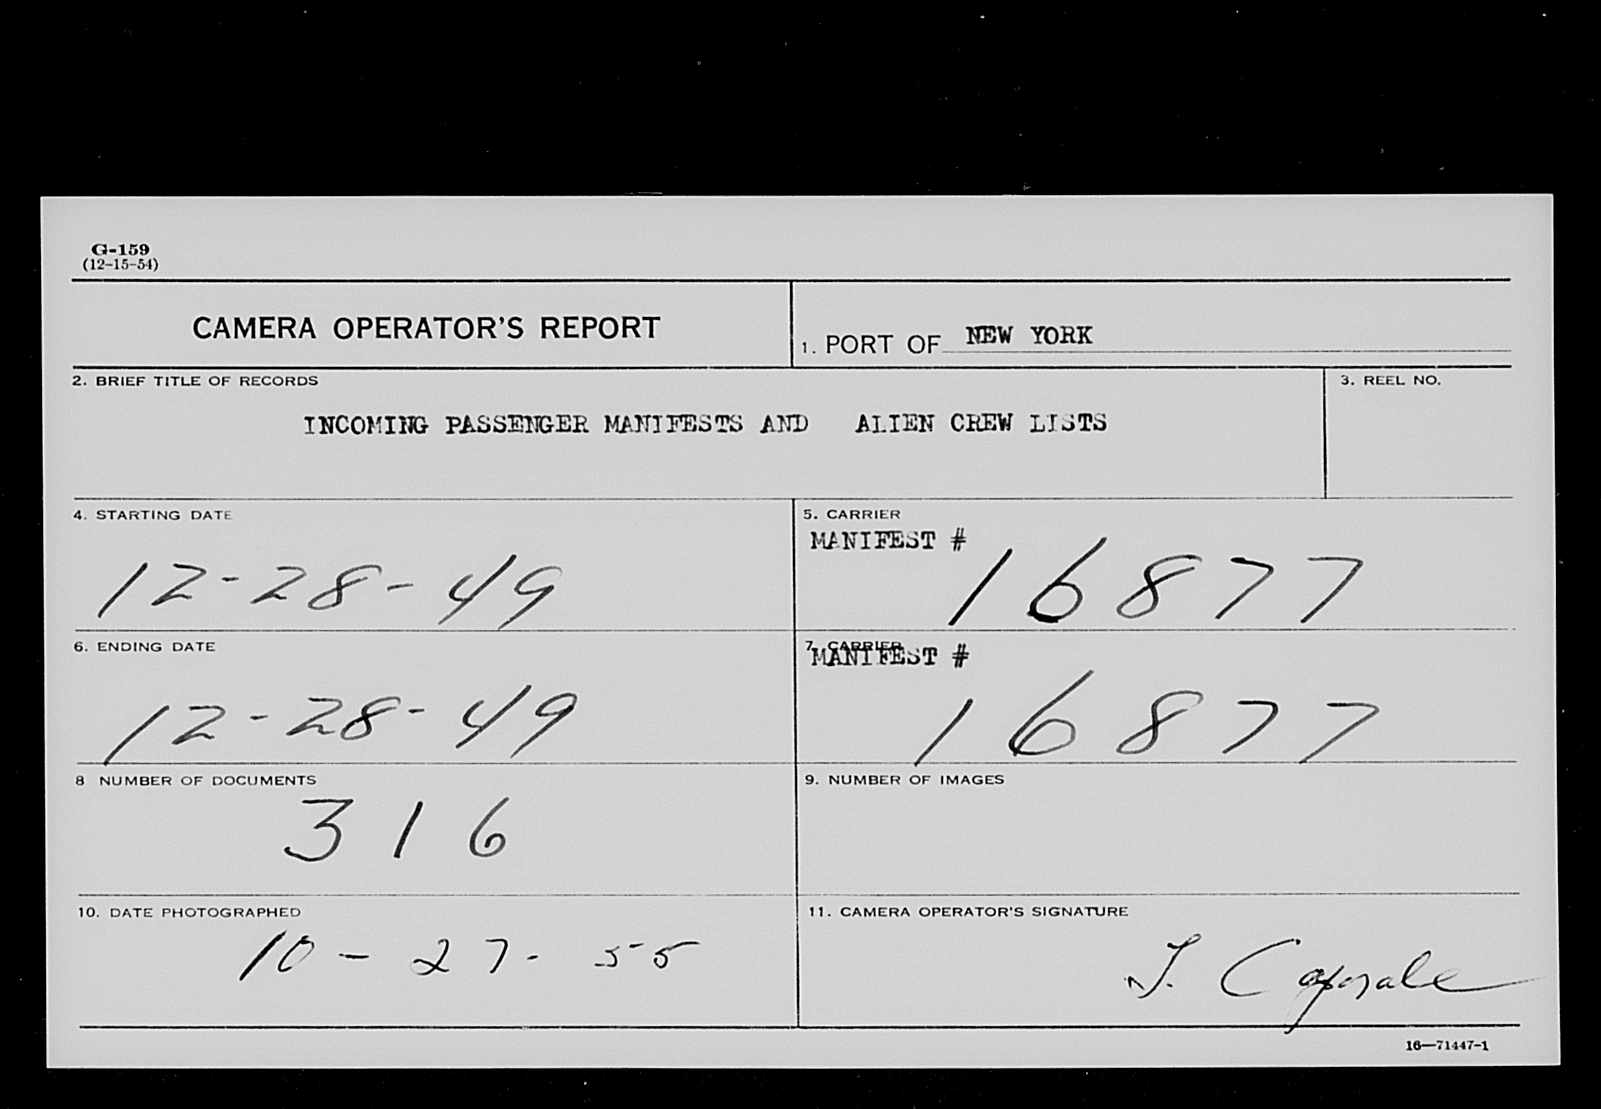 G-159
(12-15-54)
CAMERA OPERATOR'S REPORT
1. PORT OF NEW YORK
2. BRIEF TITLE OF RECORDS
3. REEL NO.
INCOMING PASSENGER MANIFESTS AND ALIEN CREW LISTS
4. STARTING DATE
12-28-49
5. CARRIER
MANIFEST #
16877
6. ENDING DATE
12-28-49
7. CARRIER
MANIFEST #
16877
8 NUMBER OF DOCUMENTS
316
9. NUMBER OF IMAGES
10. DATE PHOTOGRAPHED
10-27-55
11. CAMERA OPERATOR'S SIGNATURE
16—71447-1